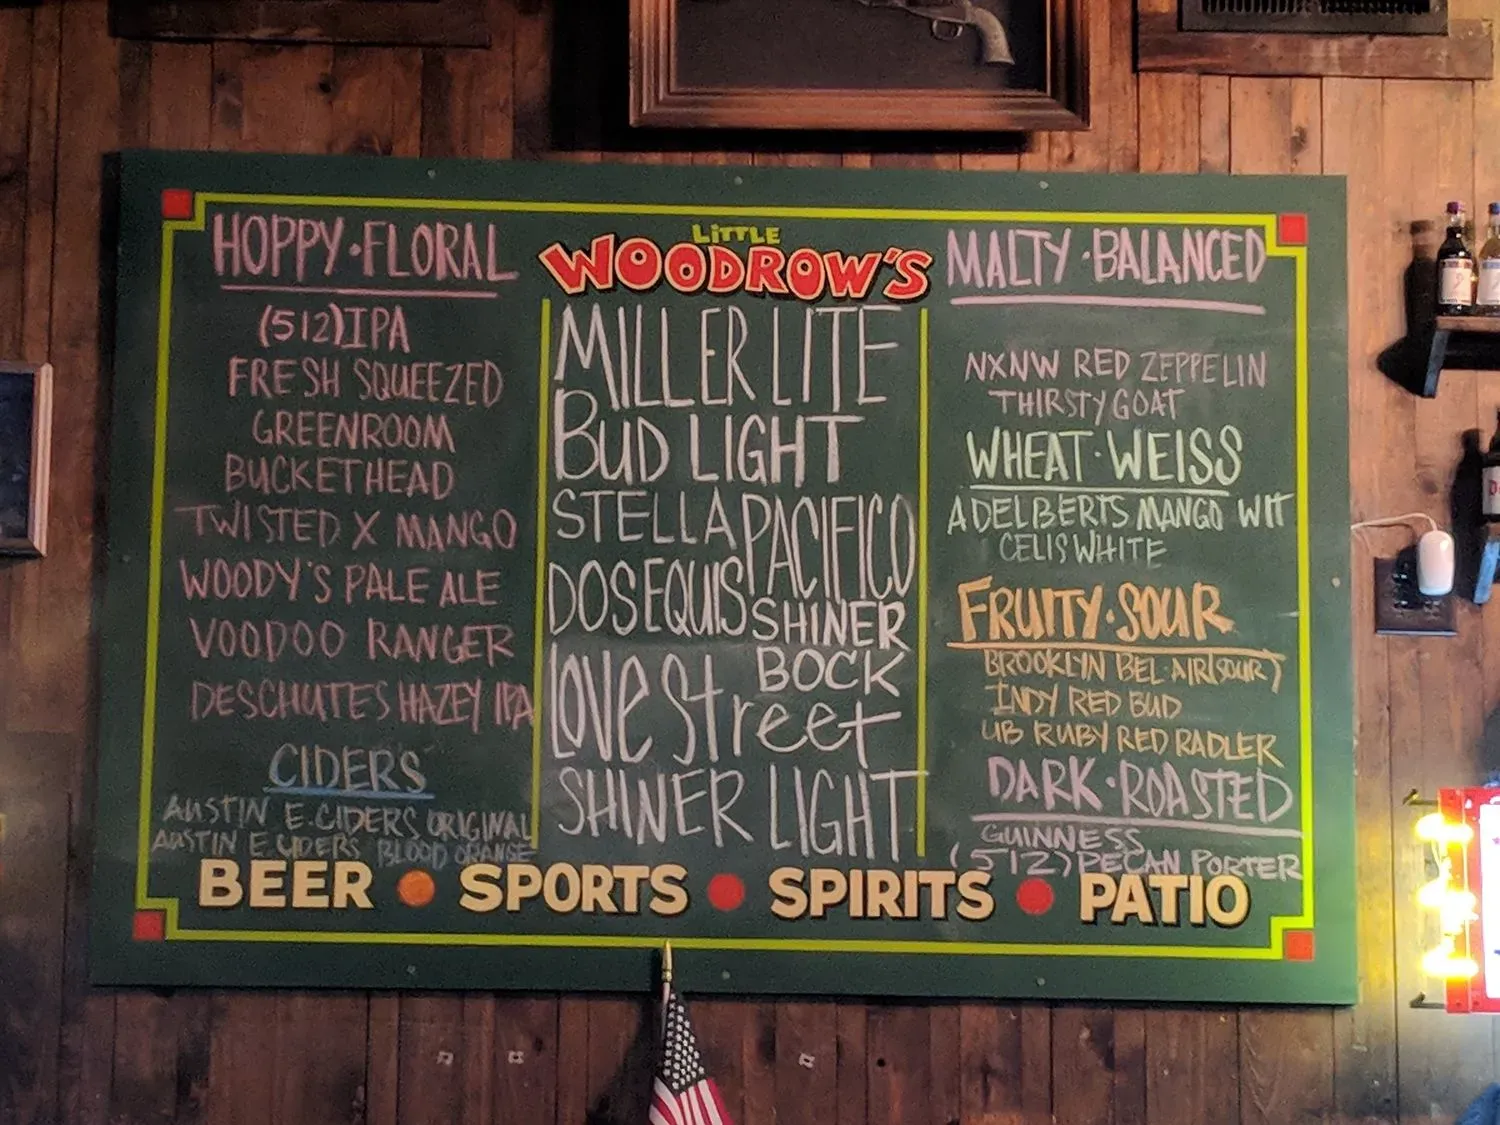 HOPPY·FLORAL
(512)IPA
FRESH SQUEEZED
GREENROOM
BUCKETHEAD
TWISTED X MANGO
WOODY'S PALE ALE
VOODOO RANGER
DESCHUTES HAZEY IPA
CIDERS
AUSTIN E.CIDERS ORIGINAL
AUSTIN E.CIDERS BLOOD ORANGE
LITTLE
WOODROW'S
MILLER LITE
BUD LIGHT
STELLA PACIFICO
DOS EQUIS SHINER
BOCK
LOVE Street
SHINER LIGHT
MALTY·BALANCED
NXNW RED ZEPPELIN
THIRSTY GOAT
WHEAT·WEISS
ADELBERTS MANGO WIT
CELIS WHITE
FRUITY·SOUR
BROOKLYN BEL·AIR(SOUR)
INDY RED BUD
UB RUBY RED RADLER
DARK·ROASTED
GUINNESS
(512)PECAN PORTER
BEER • SPORTS • SPIRITS • PATIO